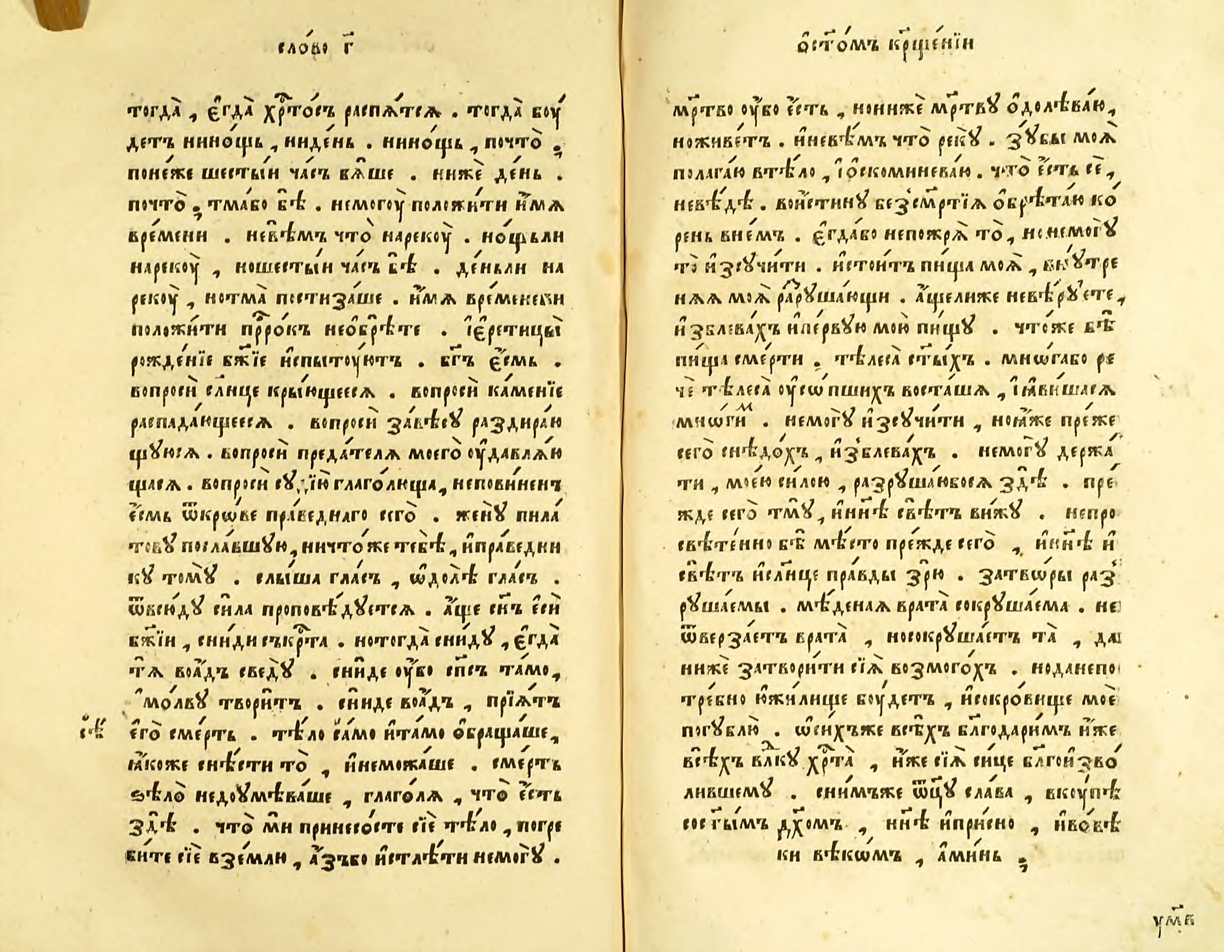 сло́во г҃
тогда̀ , є҆гда̀ хрⷭ҇тосъ распѧ́тсѧ . тогда̀ боу́
детъ нино́щь , нидє́нь . нино́щь , почто̀ ;
поне́же шесты́и часъ бѧ́ше . нижѐ де́нь .
почто̀ ; тма́бо бѣ̀ . немогоу̀ положи́ти и҆́мѧ
вре́мени . невѣ́мъ что̀ нарекоу̀ . но́щьли
нарекоу̀ , ношесты́и часъ бѣ̀ . де́ньли на
рекоу̀ , нотма̀ постиза́ше . и҆́мѧ временє́ви
положи́ти прⷪ҇ро́къ необрѣ́те . і҆є҆ретицы̀
рожде́нїе бж҃їе и҆спытоу́ютъ . бг҃ъ є҆́смь .
вопросѝ сл҃нце кры́ющеесѧ . вопросѝ ка́менїе
распада́ющеесѧ . вопросѝ завѣ́сꙋ раздира́ю
щꙋюсѧ . вопросѝ преда́телѧ моего̀ оу҆давлѧ́ю
щасѧ . вопросѝ сꙋдїю̀ глаго́люща , непови́ненъ
є҆́смь ѿкрѡ́ве пра́веднаго сего̀ . женꙋ̀ пила́
товꙋ посла́вшꙋю , ничто́же тебѣ̀ , и҆пра́ведни
кꙋ томꙋ̀ . слы́ша гла́съ , ѿдо́лѣ гла́съ .
ѿвсю́дꙋ си́ла проповѣ́дꙋетсѧ . а҆́ще сн҃ъ є҆сѝ
бж҃їи , сни́ди съкрⷭ҇та̀ . нотогда̀ сни́дꙋ , є҆гда̀
тѧ̀ воа҆́дъ сведꙋ̀ . сни́де оу҆́бо сп҃съ та́мо ,
молвꙋ̀ твори́тъ . сни́де воа҆́дъ , прїѧ́тъ
его̀ сме́рть . тѣ́ло са́мо и҆та́мо ѡ҆браща́ше ,
ꙗ҆́коже снѣ́сти то̀ , и҆неможа́ше . сме́рть
ѕѣло̀ недоꙋмѣва́ше , глаго́лѧ , что̀ є҆́сть
здѣ̀ . что̀ мѝ принесо́сте сїѐ тѣ́ло , погре
би́те сїѐ взе́млю , а҆́зъбо и҆стлѣ́ти немогꙋ̀ .
ѡ҆ст҃о́мъ крⷭ҇ще́нїи
мр҃тво оу҆́бо є҆́сть , нонижѐ мр҃твꙋ ѡ҆долѣва́ю ,
ноживе́тъ . и҆невѣ́мъ что̀ рекꙋ̀ . зꙋ́бы моѧ̀
полага́ю втѣ́ло , і҆ѡ҆скоминева́ю . что̀ є҆́сть сѐ ,
невѣ́дѣ . вои́стинꙋ безсме́ртїѧ ѡ҆брѣта́ю ко́
рень вне́мъ . є҆гда́бо непожрѧ̀ то̀ , нонемогꙋ̀
то̀ и҆зсꙋчи́ти . и҆стои́тъ пи́ща моѧ̀ , внꙋ́тре
нѧѧ моѧ̀ разрꙋша́ющи . а҆́щелиже невѣ́рꙋете ,
и҆зблева́хъ и҆пе́рвꙋю мою̀ пи́щꙋ . что́же бѣ̀
пи́ща сме́рти . тѣлеса̀ ст҃ы́хъ . мно́габо ре
чѐ тѣлеса̀ оу҆со́пшихъ воста́шѧ , і҆ꙗ҆ви́шасѧ
мно́гимъ . немогꙋ̀ и҆зсꙋчи́ти , нои҆ꙗ҆́же пре́же
сего̀ снѣдо́хъ , и҆зблева́хъ . немогꙋ̀ держа́
ти , мое́ю си́лою , разрꙋша́юбосѧ здѣ̀ . пре́
жде сего̀ тмꙋ̀ , и҆нн҃ѣ свѣ́тъ ви́жꙋ . непро
свѣте́нно бѣ̀ мѣ́сто пре́жде сего̀ , и҆нн҃ѣ и҆
свѣ́тъ и҆сл҃нце пра́вды зрю̀ . затво́ры раз
рꙋша́емы . мѣ́денаѧ врата̀ сокрꙋша́ема . не
ѿверза́етъ врата̀ , носокрꙋша́етъ та̀ , да
нижѐ затвори́ти сїѧ̀ возмого́хъ .ноданепо
тре́бно ю҆жили́ще боу́детъ , и҆сокро́вище моѐ
погꙋблю̀ . ѡ҆си́хъже всѣ́хъ благодари́мъ и҆́же
всѣ́хъ влⷣкꙋ хрⷭ҇та̀ , и҆́же сїѧ̀ си́це благои҆зво́
лившемꙋ . сни́мъже ѿц҃ꙋ сла́ва , вкоу́пѣ
сост҃ымъ дх҃омъ , нн҃ѣ и҆при́сно , и҆во́вѣ
ки вѣкѡ́мъ , а҆ми́нь ;